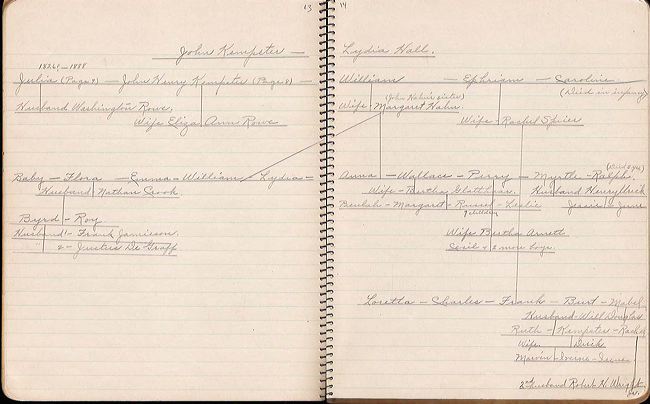 13
John Kempster —
1826 — 1888
Julia (Page 9) — John Henry Kempster (Page 8) —
Husband Washington Rowe.
Wife Eliza Ann Rowe
Baby — Flora — Emma — William — Lydia —
Husband Nathan Cook
Byrd — Roy
Husband 1 — Frank Jamieson.
2 — Justus De Graff
14
Lydia Hall.
William — Ephriam — Caroline
(Died in infancy)
(John Hahn's sister)
Wife Margaret Hahn.
Wife — Rachel Spier
(died 2 yrs)
Anna — Wallace — Perry — Myrtle — Ralph.
Wife — Bertha Husband Henry
Beulah — Margaret — Russel — Leslie Jessie & June
Wife Bertha Arnett
Cecil & 2 more boys.
Loretta — Charles — Frank — Burt — Mabel
Husband — Will Douglas
Ruth — Kempster — Rachel
Wife
Marvin —
2nd Husband Robert N. Wright